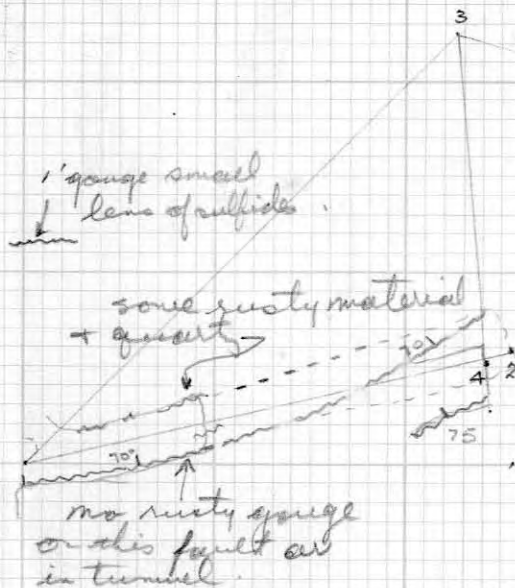 3
1' gouge small
lens of sulfides.
some rusty material
+ quartz
70°
4 2
75
70°
no rusty gouge
on this fault as
in tunnel.